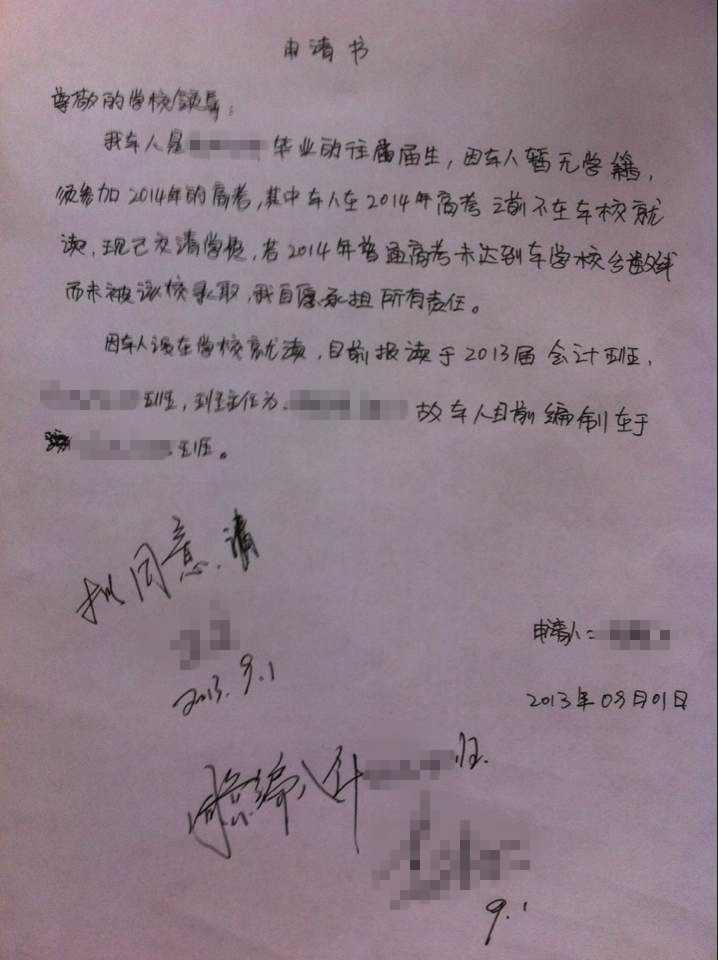 申请书
尊敬的学校领导：
我本人是毕业的往届届生，因本人暂无学籍，
须参加2014年的高考，其中本人在2014年高考之前不在本校就
读，现已交清学费，若2014年普通高考未达到本学校分数线
而未被该校录取，我自愿承担所有责任。
因本人误在学校就读，目前报读于2013届会计班，
班，班主任为. 故本人目前编制在于
班。
拟同意.请
2013.9.1
申请人：
2013年09月01日
同意编入会计班.
9.1